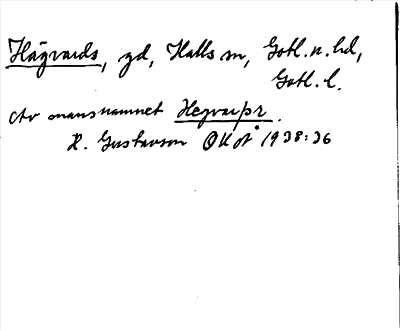 Hägvards, gd, Halls sn, Gotl. n. hd,
Gotl. l.
Av mansnamnet Hegvaiþr.
H. Gustavson OKoÅ 1938:36